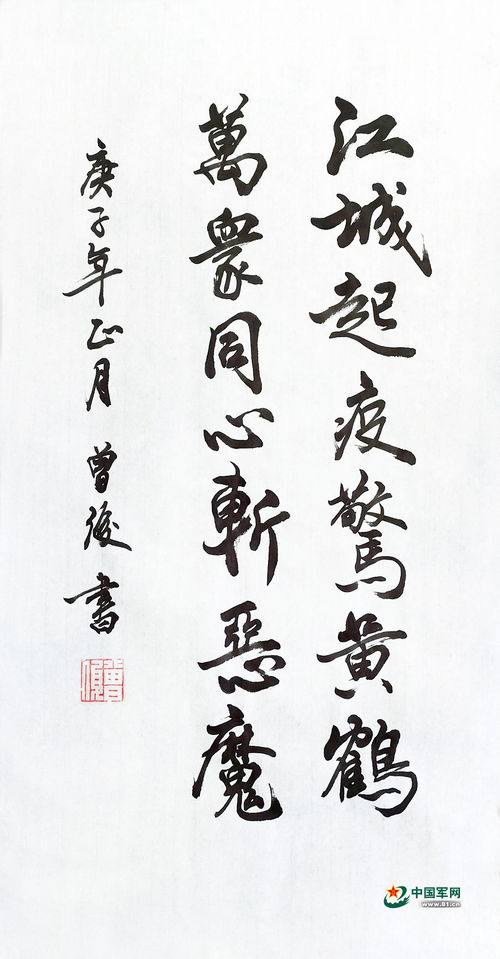 江城起疫驚黄鶴
萬衆同心斬惡魔
庚子年正月 曾俊 書
中国军网
www.81.cn